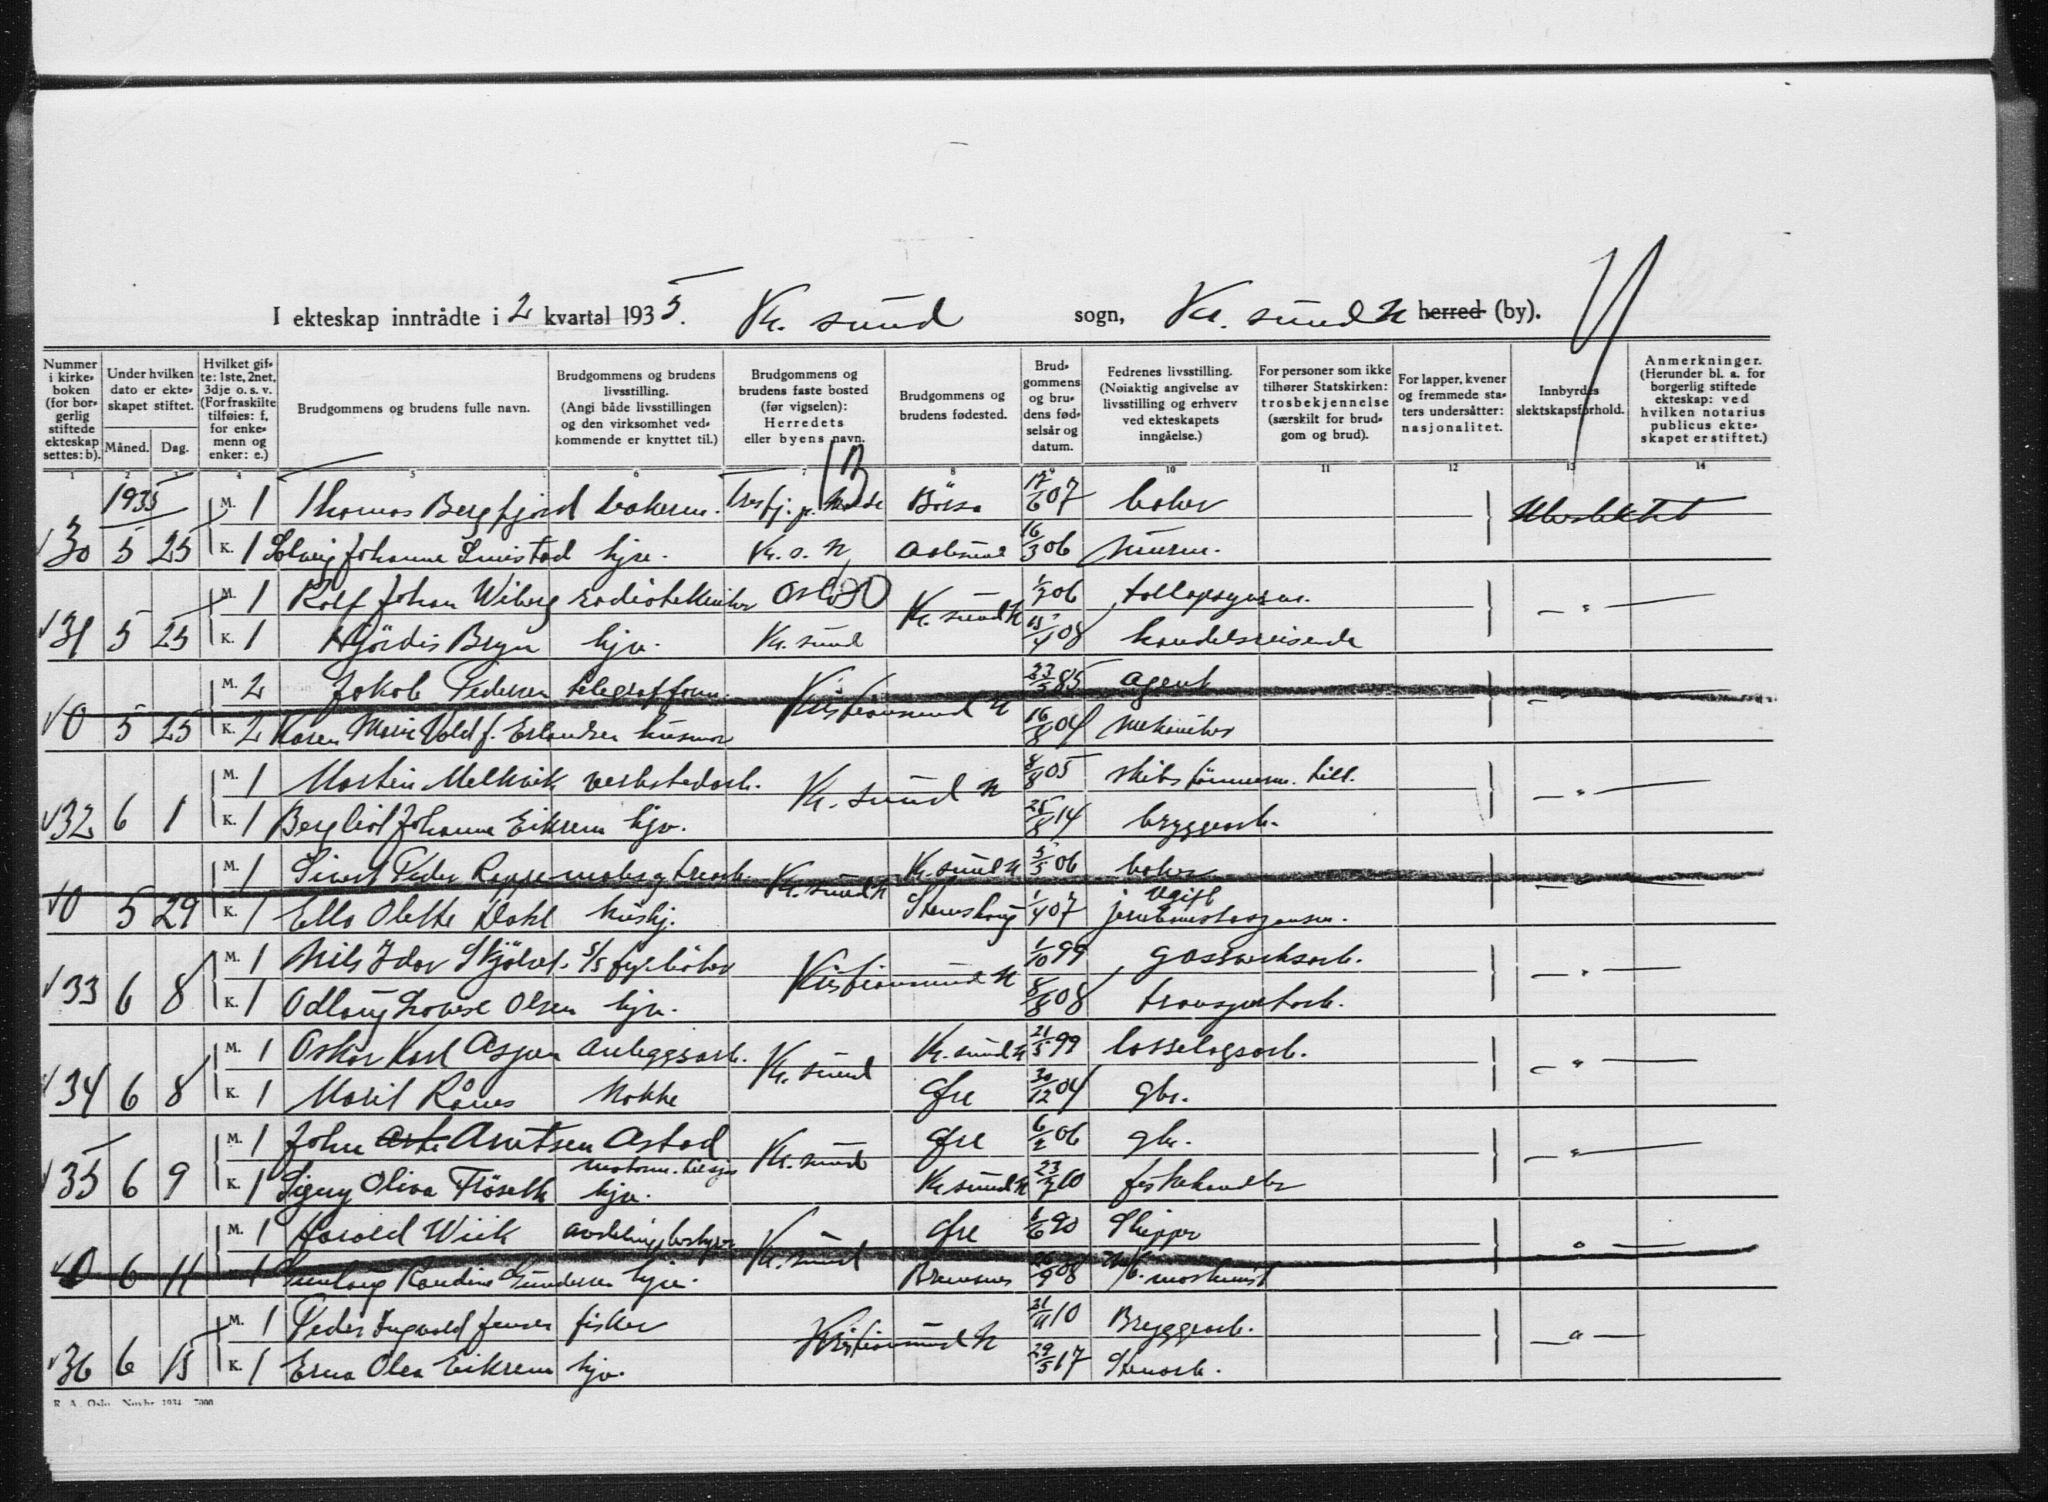 I ekteskap inntrådte i 2 kvartal 1935. Kr. sund sogn, Kr. sund N herred (by).
Nummer i kirkeboken (for borgerlig stiftede ekteskap settes: b).
Under hvilken dato er ekteskapet stiftet.
Måned. Dag.
Hvilket gifte: 1ste, 2net, 3dje o. s. v. (For fraskilte tilføies: f, for enkemenn og enker: e.)
Brudgommens og brudens fulle navn.
Brudgommens og brudens livsstilling. (Angi både livsstillingen og den virksomhet vedkommende er knyttet til.)
Brudgommens og brudens faste bosted (før vigselen): Herredets eller byens navn.
Brudgommens og brudens fødested.
Brudgommens og brudens fødselsår og datum.
Fedrenes livsstilling. (Nøiaktig angivelse av livsstilling og erhverv ved ekteskapets inngåelse.)
For personer som ikke tilhører Statskirken: trosbekjennelse (særskilt for brudgom og brud).
For lapper, kvener og fremmede staters undersåtter: nasjonalitet.
Innbyrdes slektskapsforhold.
Anmerkninger. (Herunder bl. a. for borgerlig stiftede ekteskap: ved hvilken notarius publicus ekteskapet er stiftet.)
1 2 3 4 5 6 7 8 9 10 11 12 13 14
1935 M. 1 Thomas Bergfjord bakerm. Molde Börsa 17/6 07 baker Ubeslektet
30 5 25 K. 1 Solveig Johanne hjv. Kr. s. N Aalesund 16/3 06 murerm.
M. 1 Rolf Johan Wiberg radiotekniker Oslo Kr. sund N 06 — " —
31 5 25 K. 1 Hjördis Bryn hjv. Kr. sund 15/4 08 handelsreisende
M. 2 Jakob Pedersen Kristiansund N 23/5 85 agent — " —
0 5 25 K. 2 Karen Marie Vold f. Erlandsen husmor 16/8 04 mekaniker
M. 1 Martin Melkvik verkstedarb. Kr. sund N 8/8 05 — " —
32 6 1 K. 1 Bergliot Johanne Eikrem hjv. 25/8 14 bryggearb.
M. 1 Sivert Peder Kr. sund N Kr. sund N 5/5 06 baker — " —
0 5 29 K. 1 Ella Olette Dahl hushj. 1/4 07 Ugift
M. 1 Nils Idar fyrböter Kristiansund N 1/10 99 gassverksarb. — " —
33 6 8 K. 1 Odlaug Lovise Olsen hjv. 8/8 08 transportarb.
M. 1 Oskar Karl Aspen anleggsarb. Kr. sund Kr. sund N 21/5 99 — " —
34 6 8 K. 1 Marit Rånes kokke Gfre 30/12 04 gbr.
M. 1 John Arntsen Astad Kr. sund Gfre 6/2 06 gbr. — " —
35 6 9 K. 1 Signy Oliva Flöseth hjv. Kr. sund N 23/7 10 fiskehandler
M. 1 Harald Wiik avdelingsbestyrer Kr. sund Gfre 1/6 90 Skipper — " —
0 6 11 1 Gundersen hjv. Bremsnes 26/9 08 maskinist
M. 1 Peder Ingvald Jensen fisker Kristiansund N 10 Bryggearb. — " —
36 6 15 K. 1 Erna Olea Eikrem hjv. 29/5 17 Stenarb.
R. A. Oslo. Novbr. 1934. 7000